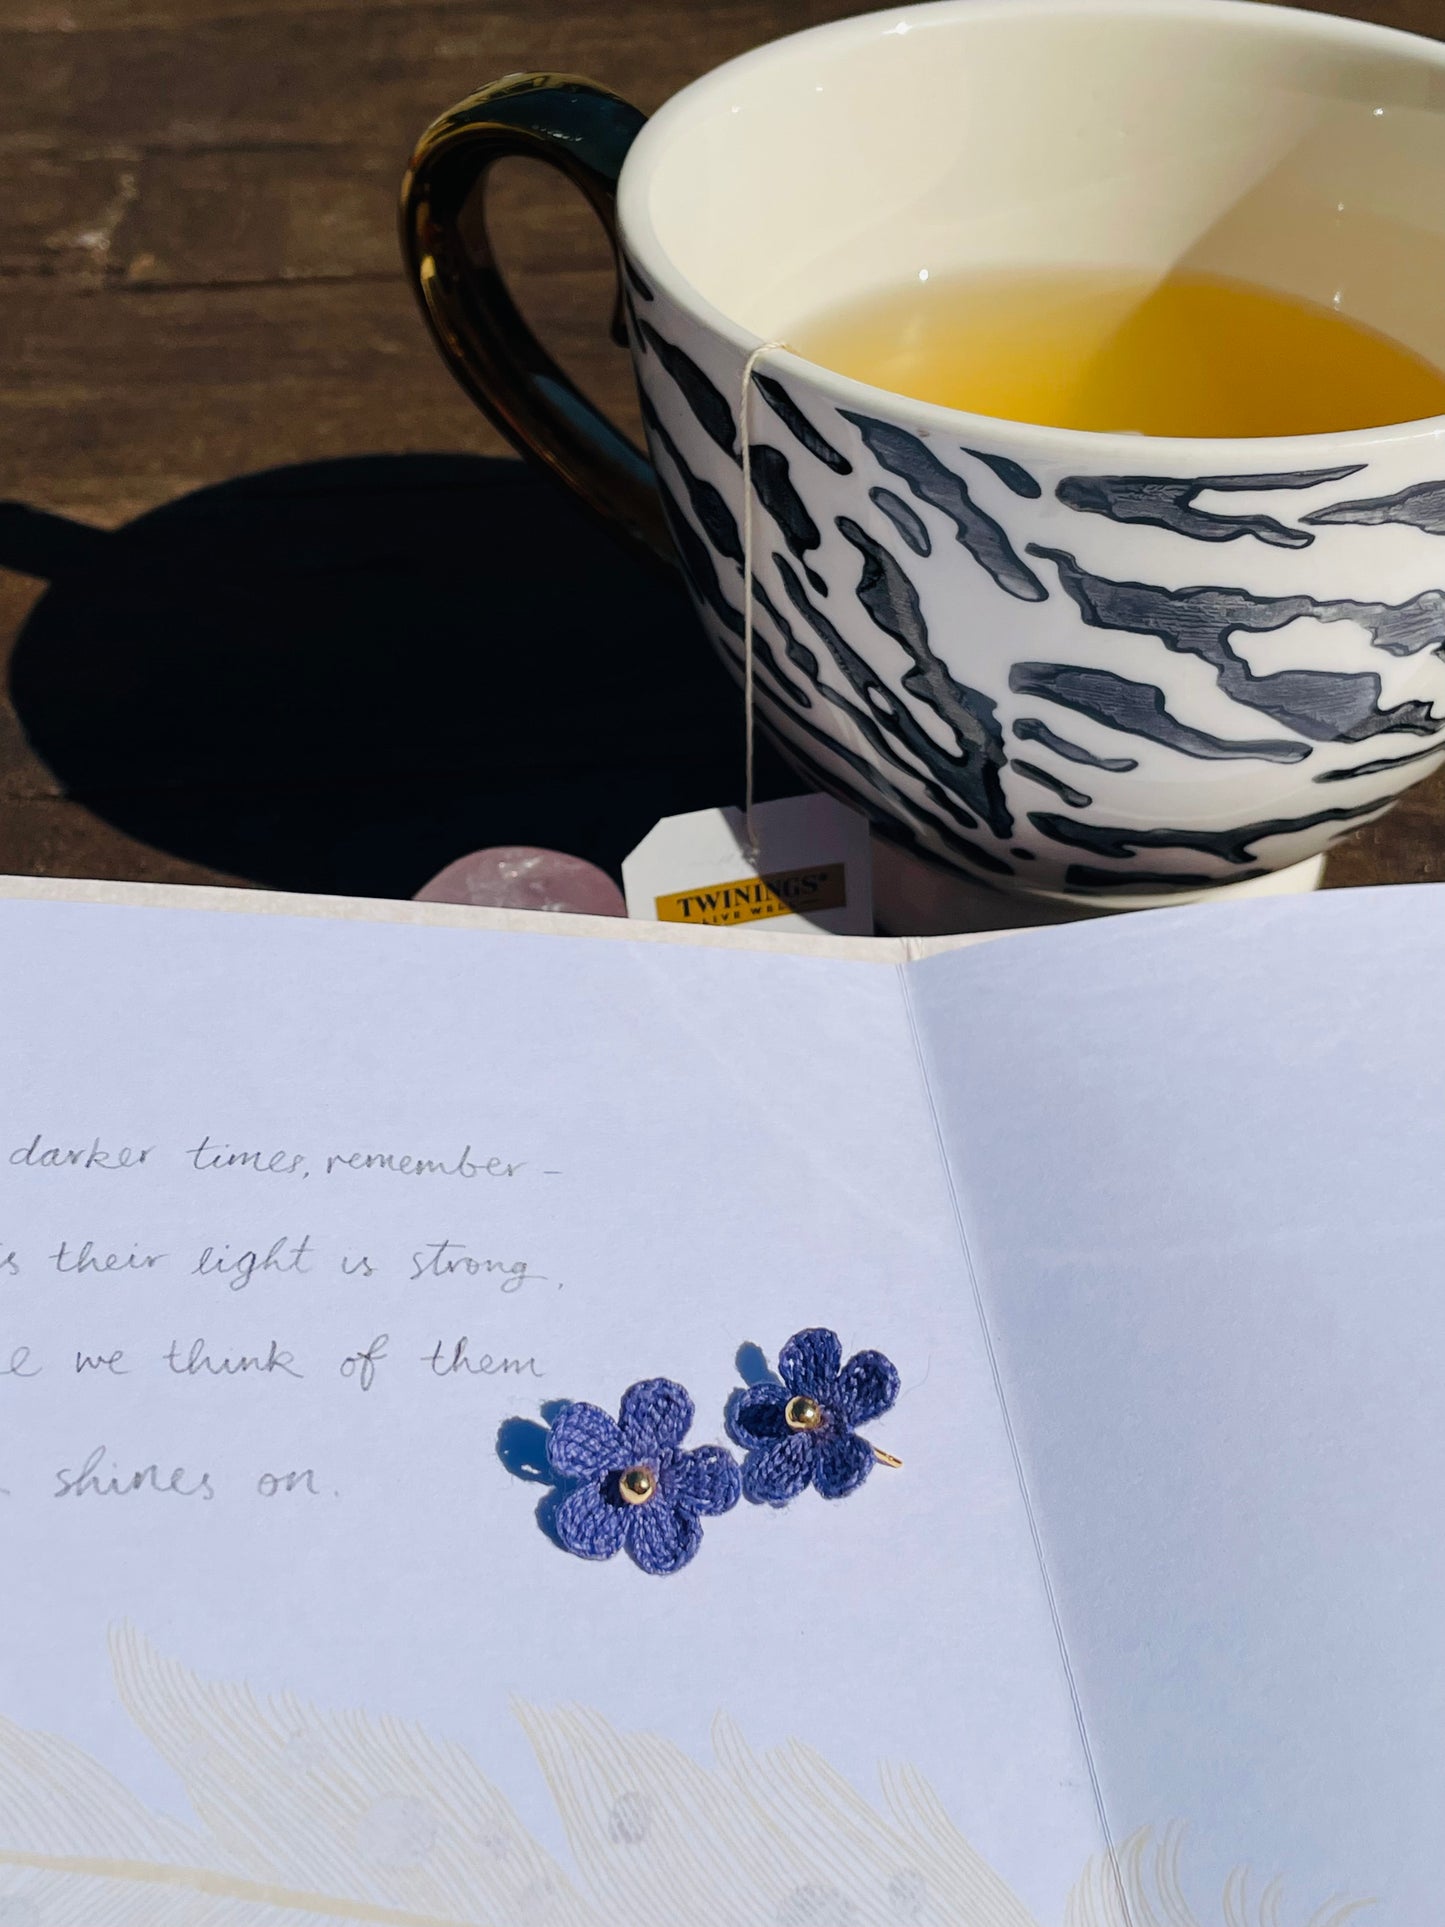 TWININGS®
LIVE WELL
darker times, remember –
is their light is strong,
we think of them
shines on.